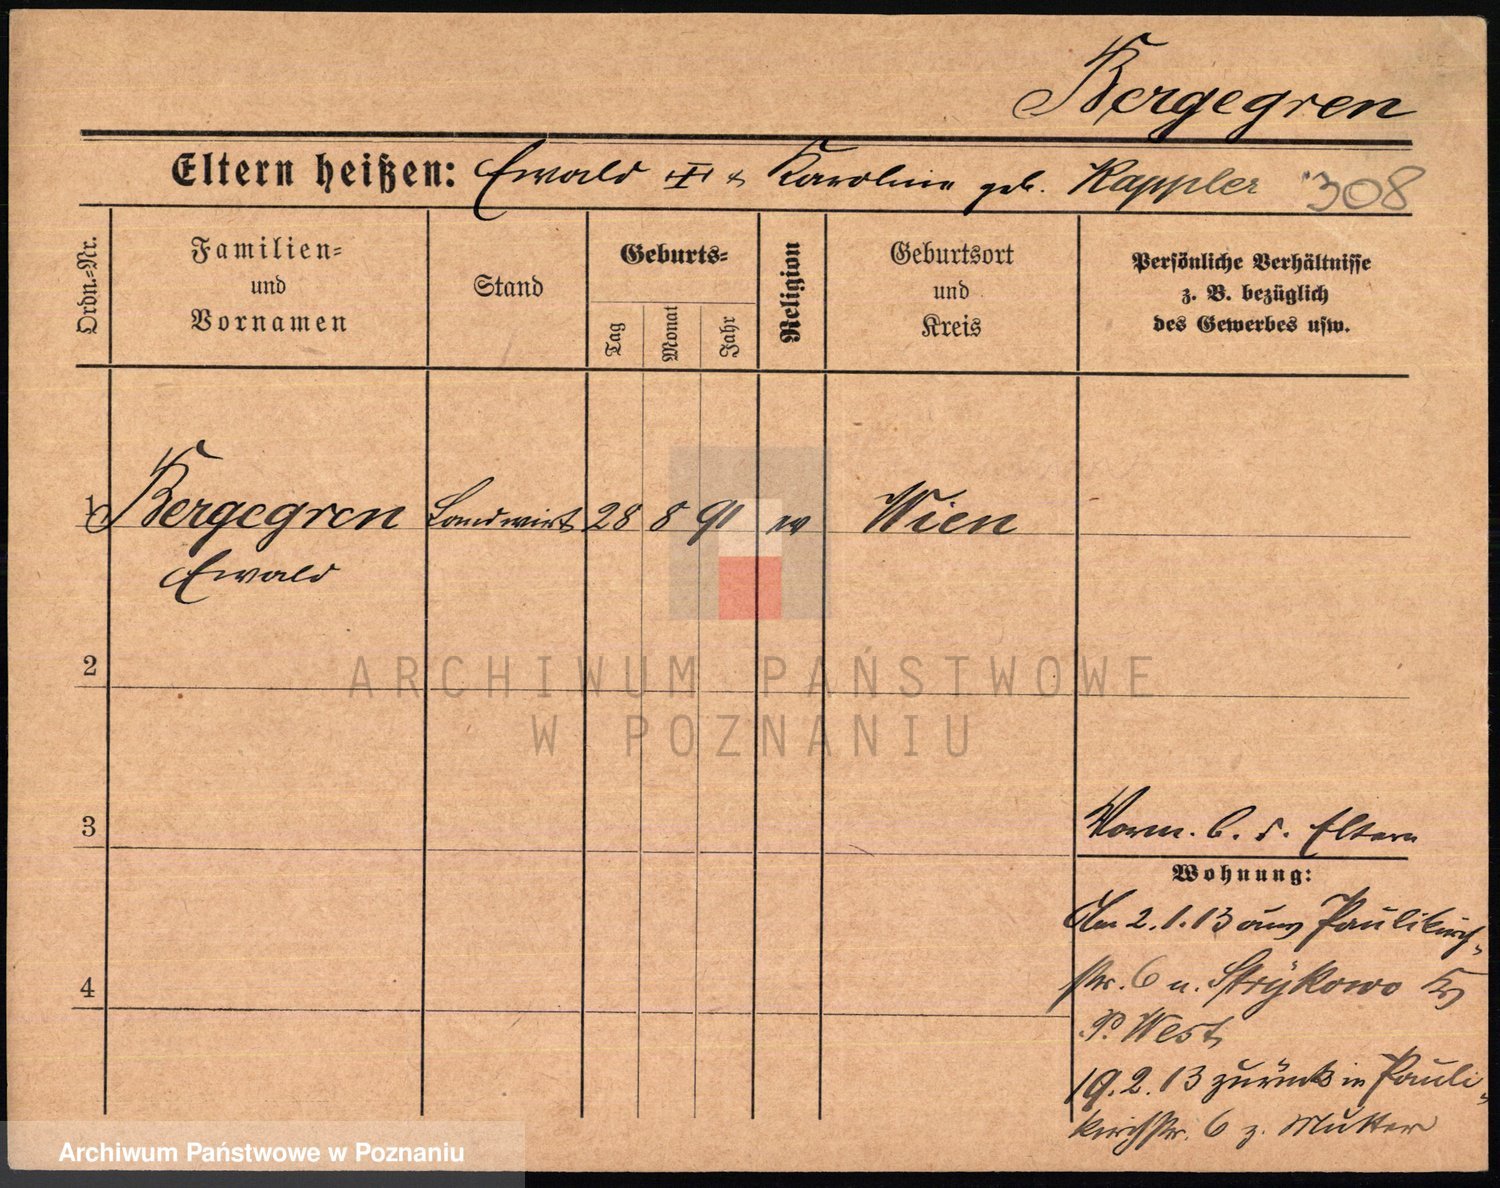 Bergegren
Eltern heißen: Ewald u. Karoline geb. Kappler 308
Ordn.-Nr.
Familien-
und
Vornamen
Stand
Geburts-
Tag
Monat
Jahr
Religion
Geburtsort
und
Kreis
Persönliche Verhältnisse
z. B. bezüglich
des Gewerbes usw.
1 Bergegren Landwirt 28 8 91 ev Wien
Ewald
2
ARCHIWUM PAŃSTWOWE
W POZNANIU
3
Vorm. b. d. Eltern
Wohnung:
Am 2.1.13 aus Paulikirch-
str. 6 n. Strykowo Kr
P. West
19.2.13 zurück in Pauli-
kirchstr. 6 z. Mutter
4
Archiwum Państwowe w Poznaniu